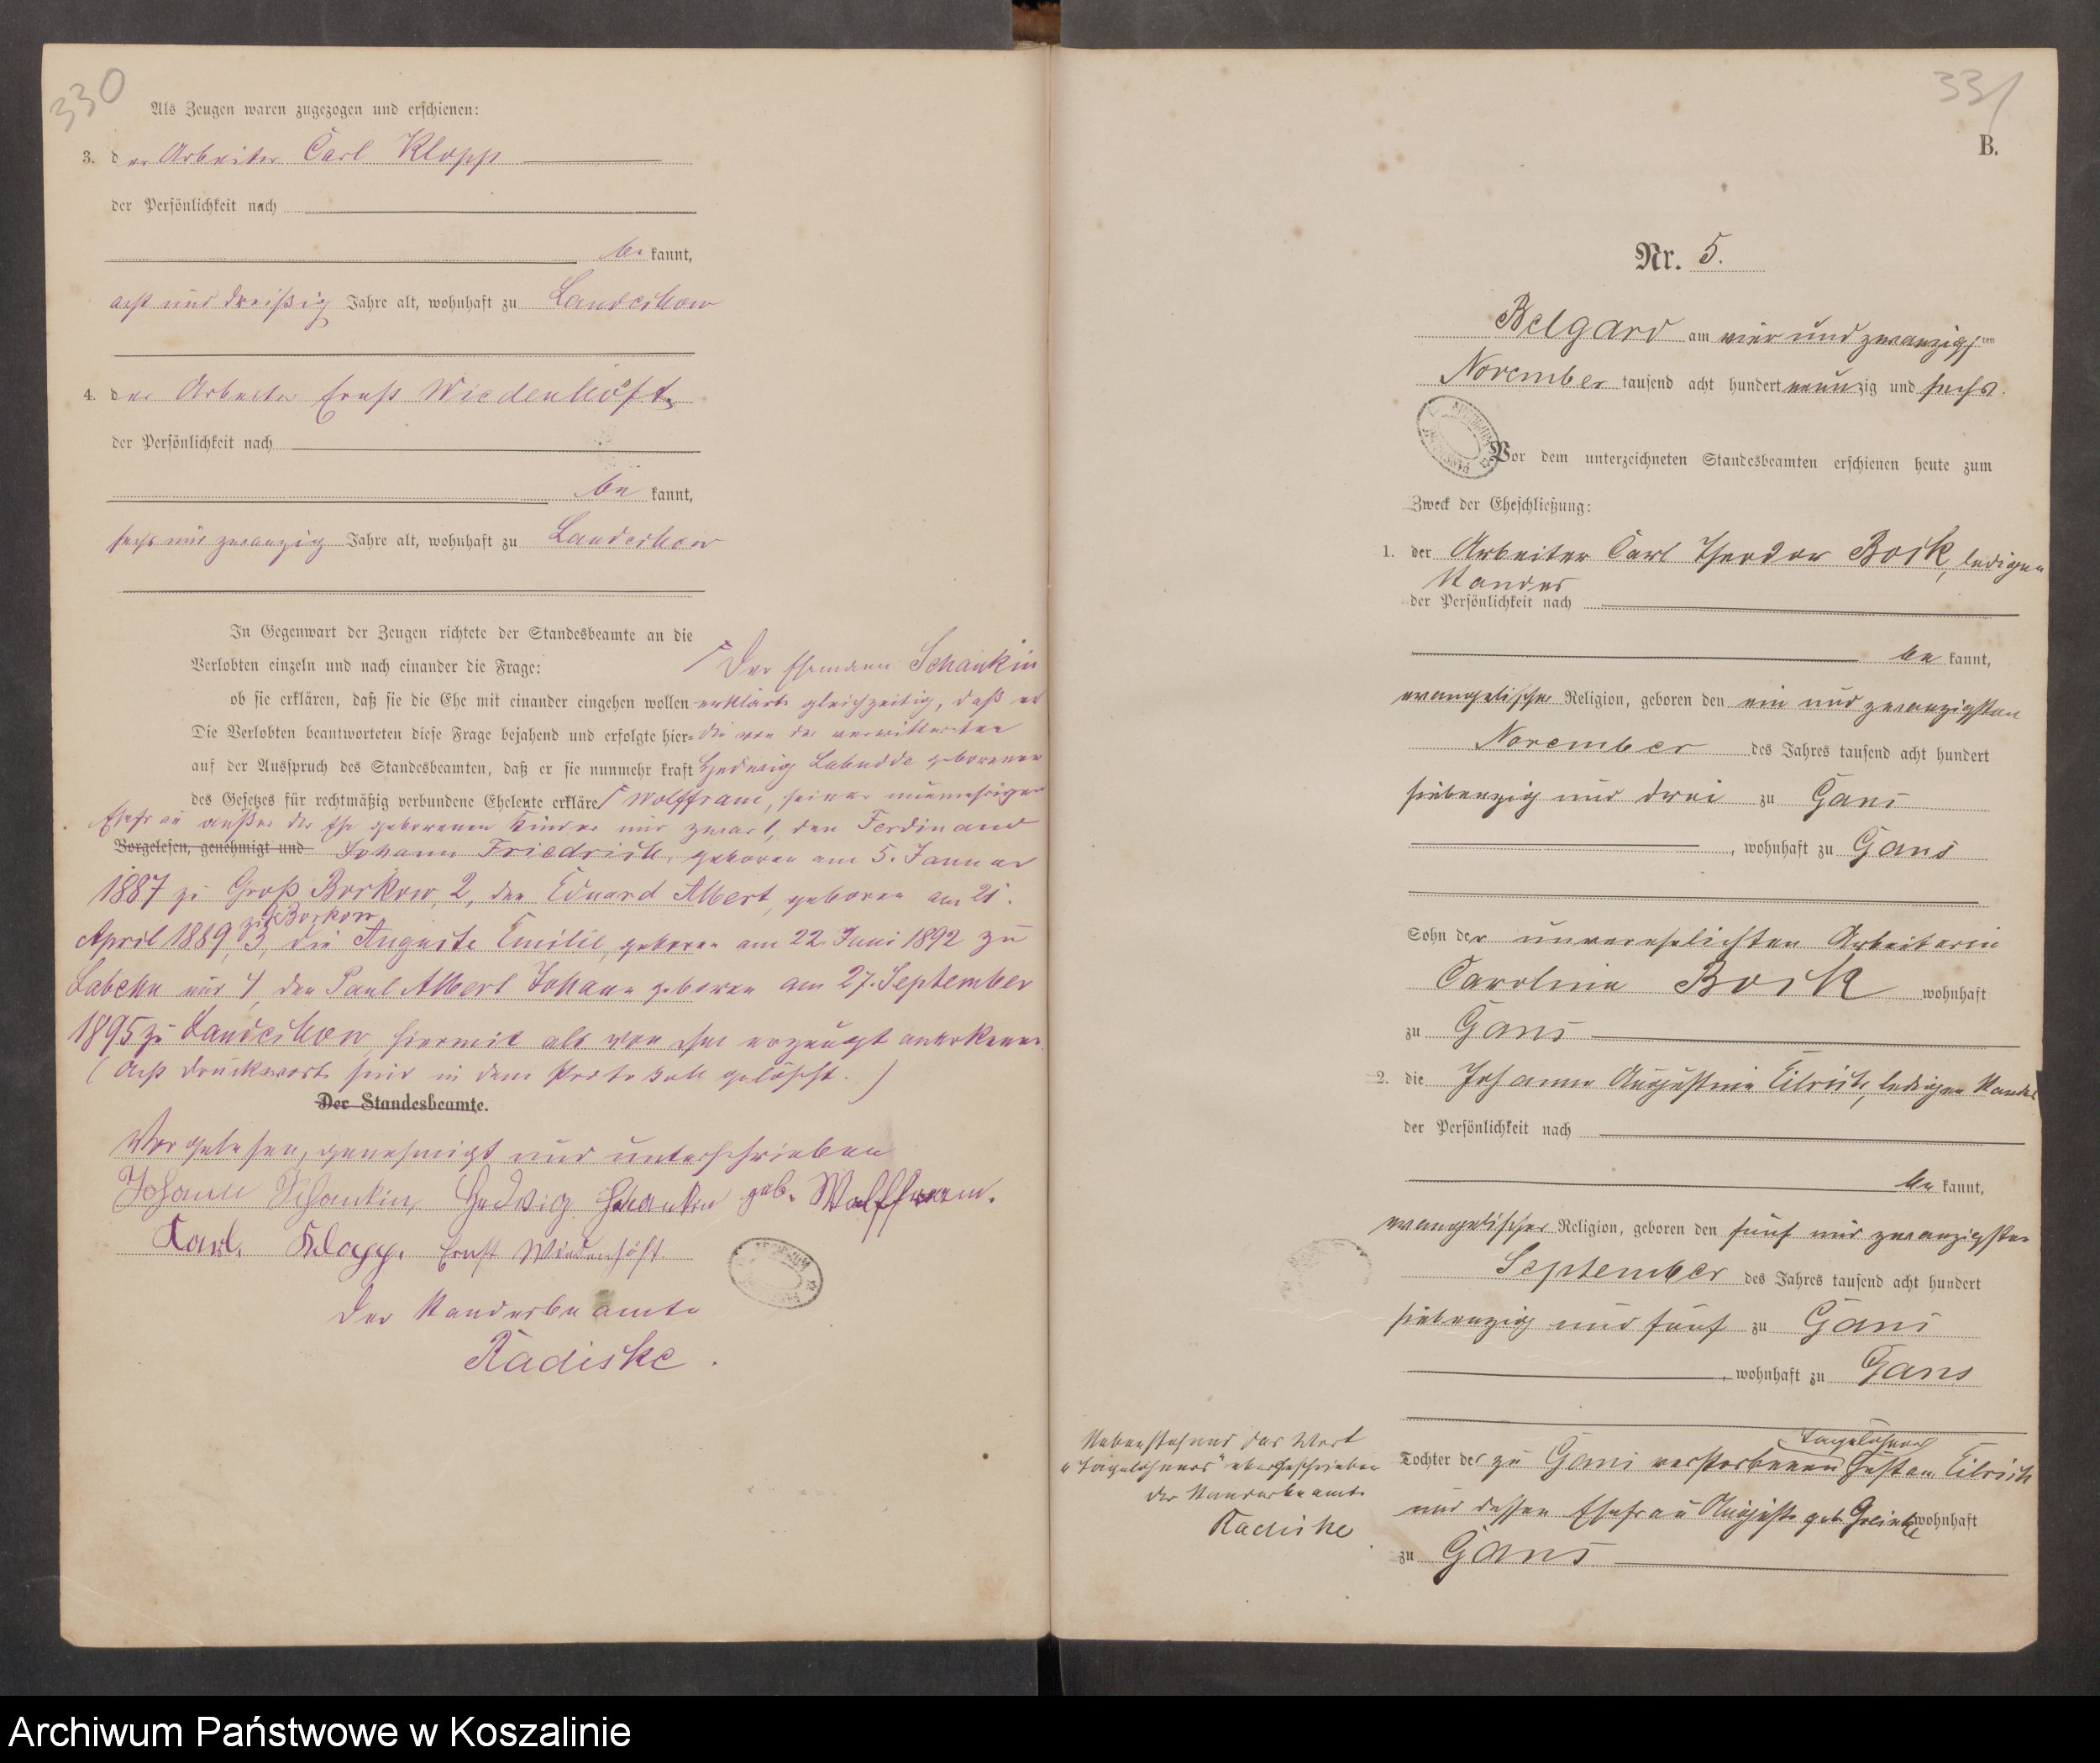 330
Als Zeugen waren zugezogen und erschienen:
3. der Arbeiter Carl Klopp
der Persönlichkeit nach
be kannt,
acht und dreißig Jahre alt, wohnhaft zu Landechow
4. der Arbeiter Ernst Wiedenhöft
der Persönlichkeit nach
be kannt,
sechs und zwanzig Jahre alt, wohnhaft zu Landechow
In Gegenwart der Zeugen richtete der Standesbeamte an die
Verlobten einzeln und nach einander die Frage:
ob sie erklären, daß sie die Ehe mit einander eingehen wollen
Die Verlobten beantworteten diese Frage bejahend und erfolgte hier-
auf der Ausspruch des Standesbeamten, daß er sie nunmehr kraft
des Gesetzes für rechtmäßig verbundene Eheleute erkläre
Der Ehemann Schankin
erklärte gleichzeitig, daß er
die von der verwittweten
Hedwig Labudda geborenen
Wolffram, seiner nunmehrigen
Ehefrau außer der Ehe geborenen Kinder und zwar 1, den Ferdinand
Vorgelesen, genehmigt und Johann Friedrich, geboren am 5. Januar
1887 zu Groß Borkow, 2, den Eduard Albert, geboren am 21.
April 1889, zu Gr Borkow 3, die Auguste Emilie, geboren am 22. Juni 1892 zu
Labehn und 4, den Paul Albert Johann geboren am 27. September
1895 zu Landechow, hiermit als von ihm erzeugt anerkenne.
(Acht Druckworte sind in dem Protokoll gelöscht.)
Der Standesbeamte.
Vorgelesen, genehmigt und unterschrieben
Johann Schankin, Hedwig Schankin geb. Wolffram.
Karl Klopp. Ernst Wiedenhöft.
Der Standesbeamte
Radiske.
331
B.
Nr. 5.
Belgard am vier und zwanzigsten
November tausend acht hundert neunzig und sechs.
Vor dem unterzeichneten Standesbeamten erschienen heute zum
Zweck der Eheschließung:
1. der Arbeiter Carl Theodor Bock, ledigen
Standes
der Persönlichkeit nach
be kannt,
evangelischer Religion, geboren den ein und zwanzigsten
November des Jahres tausend acht hundert
siebenzig und drei zu Gans
, wohnhaft zu Gans
Sohn der unverehelichten Arbeiterin
Caroline Bock wohnhaft
zu Gans
2. die Johanne Augustine Eilrich, ledigen Standes
der Persönlichkeit nach
be kannt,
evangelischer Religion, geboren den fünf und zwanzigsten
September des Jahres tausend acht hundert
siebenzig und fünf zu Gans
, wohnhaft zu Gans
Tagelöhners
Tochter des zu Gans verstorbenen Gustav Eilrich
und dessen Ehefrau Auguste geb. wohnhaft
zu Gans
Nebenstehend das Wort
"Tagelöhners" übergeschrieben
der Standesbeamte
Radiske
Archiwum Państwowe w Koszalinie